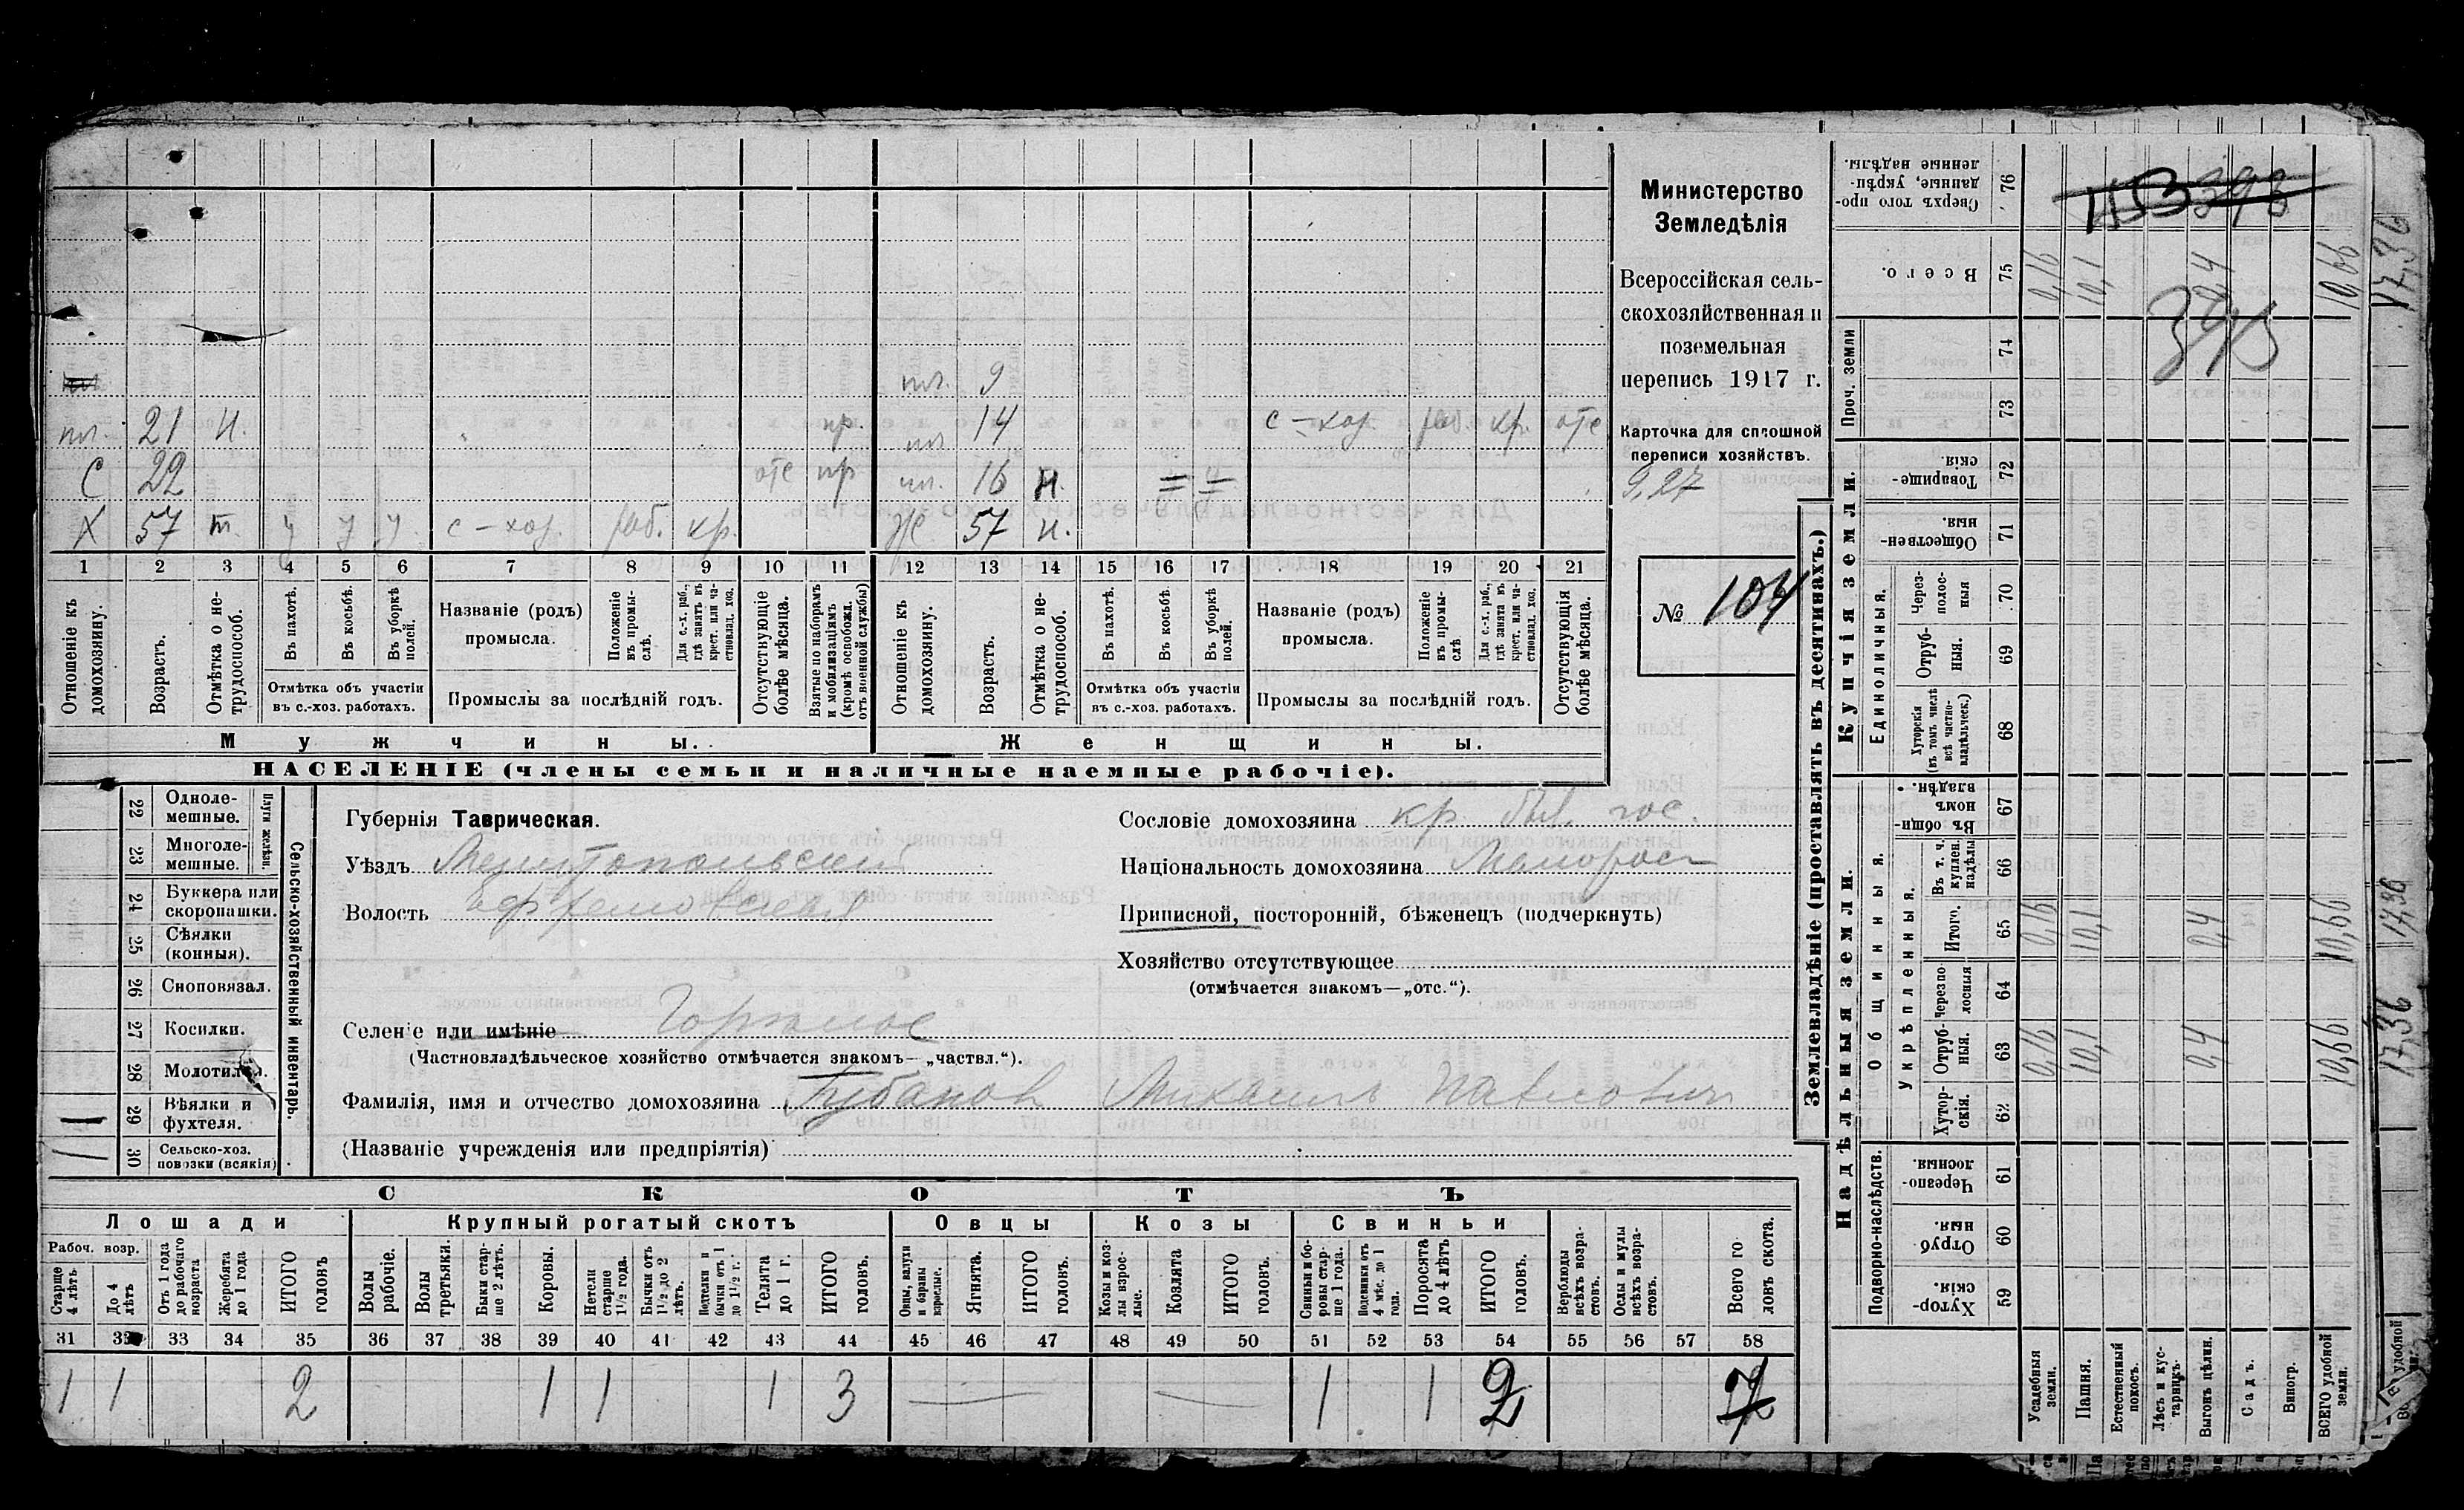 пл. 9
пл. 21 н. пр. пл. 14 с-хоз. раб. кр. отс
С 22 отс пр пл. 16 н.
Х 57 т. у у у с-хоз. раб. кр. Ж 57 н.
1 2 3 4 5 6 7 8 9 10 11 12 13 14 15 16 17 18 19 20 21
Отношеніе къ домохозяину.
Возрастъ.
Отмѣтка о не-трудоспособ.
Въ пахотѣ.
Въ косьбѣ.
Въ уборкѣ полей.
Отмѣтка объ участіи
въ с.-хоз. работахъ.
Названіе (родъ)
промысла.
Положеніе въ промы-слѣ.
Для с.-х. раб., гдѣ занятъ въ крест. или ча-стновлад. хоз.
Промыслы за послѣдній годъ.
Отсутствующіе болѣе мѣсяца.
Взятые по наборамъ и мобилизаціямъ (кромѣ освобожд. отъ военной службы)
Отношеніе къ домохозяину.
Возрастъ.
Отмѣтка о не-трудоспособ.
Въ пахотѣ.
Въ косьбѣ.
Въ уборкѣ полей.
Отмѣтка объ участіи
въ с.-хоз. работахъ.
Названіе (родъ)
промысла.
Положеніе въ промы-слѣ
Для с.-х. раб., гдѣ занята въ крест. или ча-стновлад. хоз.
Промыслы за послѣдній годъ.
Отсутствующія болѣе мѣсяца.
Мужчины.
Женщины.
НАСЕЛЕНІЕ (члены семьи и наличные наемные рабочіе).
Министерство
Земледѣлія
Всероссійская сель-
скохозяйственная и
поземельная
перепись 1917 г.
Карточка для сплошной
переписи хозяйствъ.
9,27
№ 104
22 Одноле-мешные.
23 Многоле-мешные.
Плуги желѣзн.
24 Буккера или скоропашки.
25 Сѣялки (конныя).
26 Сноповязал.
27 Косилки.
28 Молотил
29 Вѣялки и фухтеля.
30 Сельско-хоз. повозки (всякія)
Сельско-хозяйственный инвентарь.
Губернія Таврическая.
Уѣздъ Мелитопольский
Волость Ефремовская
Селеніе или имѣніе Горькое
(Частновладѣльческое хозяйство отмѣчается знакомъ—„частвл.“).
Фамилія, имя и отчество домохозяина Губанов Михаилъ Павлович
(Названіе учрежденія или предпріятія)
Сословіе домохозяина кр. был. гос.
Національность домохозяина Малоросс
Приписной, посторонній, бѣженецъ (подчеркнуть)
Хозяйство отсутствующее
(отмѣчается знакомъ—„отс.“).
СКОТЪ
Лошади
Крупный рогатый скотъ
Овцы
Козы
Свиньи
Рабоч. возр.
Старше 4 лѣтъ
До 4 лѣтъ
Отъ 1 года до рабочаго возраста
Жеребята до 1 года
ИТОГО головъ
Волы рабочіе.
Волы третьяки.
Быки стар-ше 2 лѣтъ.
Коровы.
Нетели старше 1½ года.
Бычки отъ 1½ до 2 лѣтъ.
Подтелки и бычки отъ 1 до 1½ г.
Телята до 1 г.
ИТОГО головъ.
Овцы, валухи и бараны взрослые.
Ягнята.
ИТОГО головъ.
Козы и коз-лы взрос-лые.
Козлята
ИТОГО головъ.
Свиньи и бо-ровы стар-ше 1 года.
Подсвинки отъ 4 мѣс. до 1 года.
Поросята до 4 лѣтъ
ИТОГО головъ.
Верблюды всѣхъ возра-стовъ.
Ослы и мулы всѣхъ возра-стовъ.
Всего го ловъ скота.
31 33 34 35 36 37 38 39 40 41 42 43 44 45 46 47 48 49 50 51 52 53 54 55 56 57 58
1 1 2 1 1 1 3 — — 1 1 2 7
Землевладѣніе (проставлять въ десятинахъ.)
Купчія земли.
Надѣльныя земли.
Проч. земли
Единоличныя.
Общинныя.
Укрѣпленныя.
Подворно-наслѣдств.
76 Сверхъ того про-данные, укрѣп-ленные надѣлы.
75 Всего. 0,16 10,1 0,4 10,66
393
74
73
72 Товарище-скія
71 Обществен-ныя
70 Через-полос-ныя
69 Отруб-ныя.
68 Хуторскія (въ томъ числѣ всѣ частно-владѣльческ.)
67 Въ общин-номъ владѣн.
66 Въ т. ч. куплен. надѣлы
65 Итого. 0,16 10,1 0,4 10,66
64 Черезпо лосныя
63 Отруб-ныя. 0,16 10,1 0,4 10,66
62 Хутор-скія.
61 Черезпо-лосныя.
60 Отруб ныя.
59 Хутор-скія.
Усадебныя земли.
Пашня.
Естественный покосъ.
Лѣсъ и кус-тарникъ.
Выгонъ цѣлин.
Садъ.
Виногр.
ВСЕГО удобной земли.
17,36
17,36
17,36
удобной